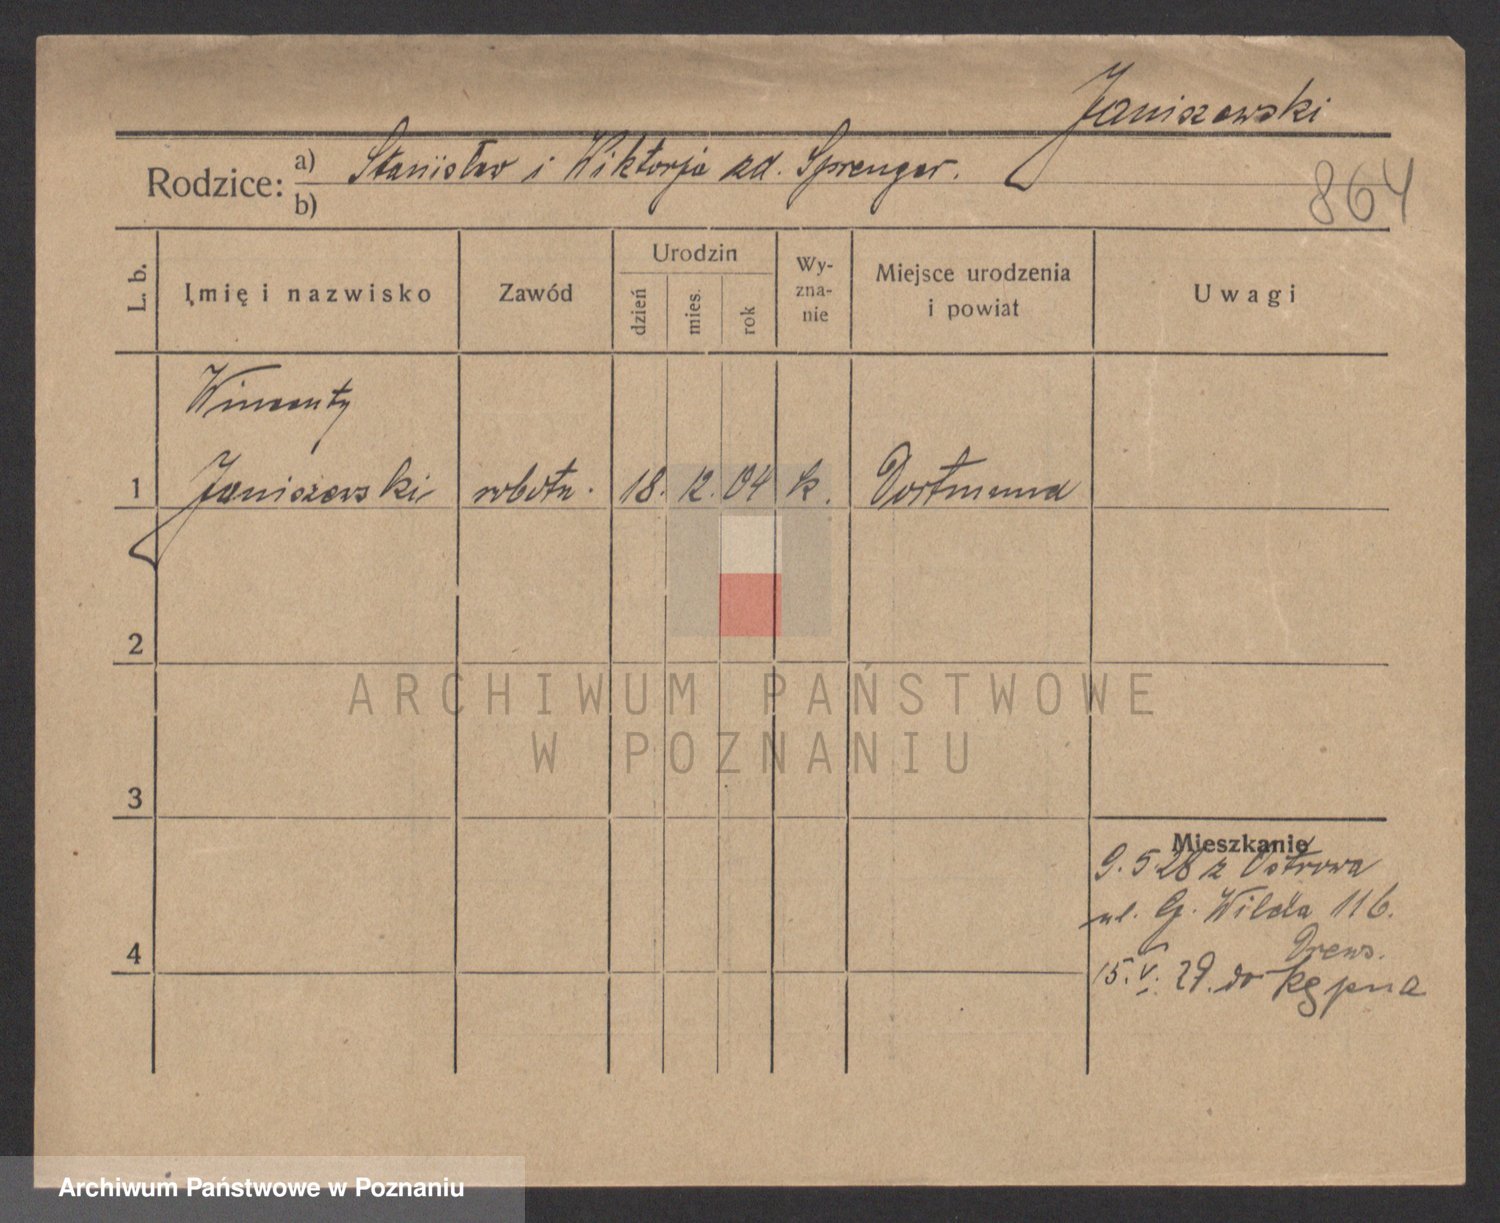 Janiszewski
Rodzice: a) Stanisław i Wiktorja zd. Sprenger.
b)
864
L. b.
Imię i nazwisko
Zawód
Urodzin
dzień
mies.
rok
Wy-
zna-
nie
Miejsce urodzenia
i powiat
Uwagi
Wincenty
1 Janiszewski robotn. 18. 12. 04 k. Dortmund
2
ARCHIWUM PAŃSTWOWE
W POZNANIU
3
Mieszkanie
9.5.28 z Ostrowa
ul. G. Wilda 116.
Drews.
4
15. V. 29. do Kępna
Archiwum Państwowe w Poznaniu